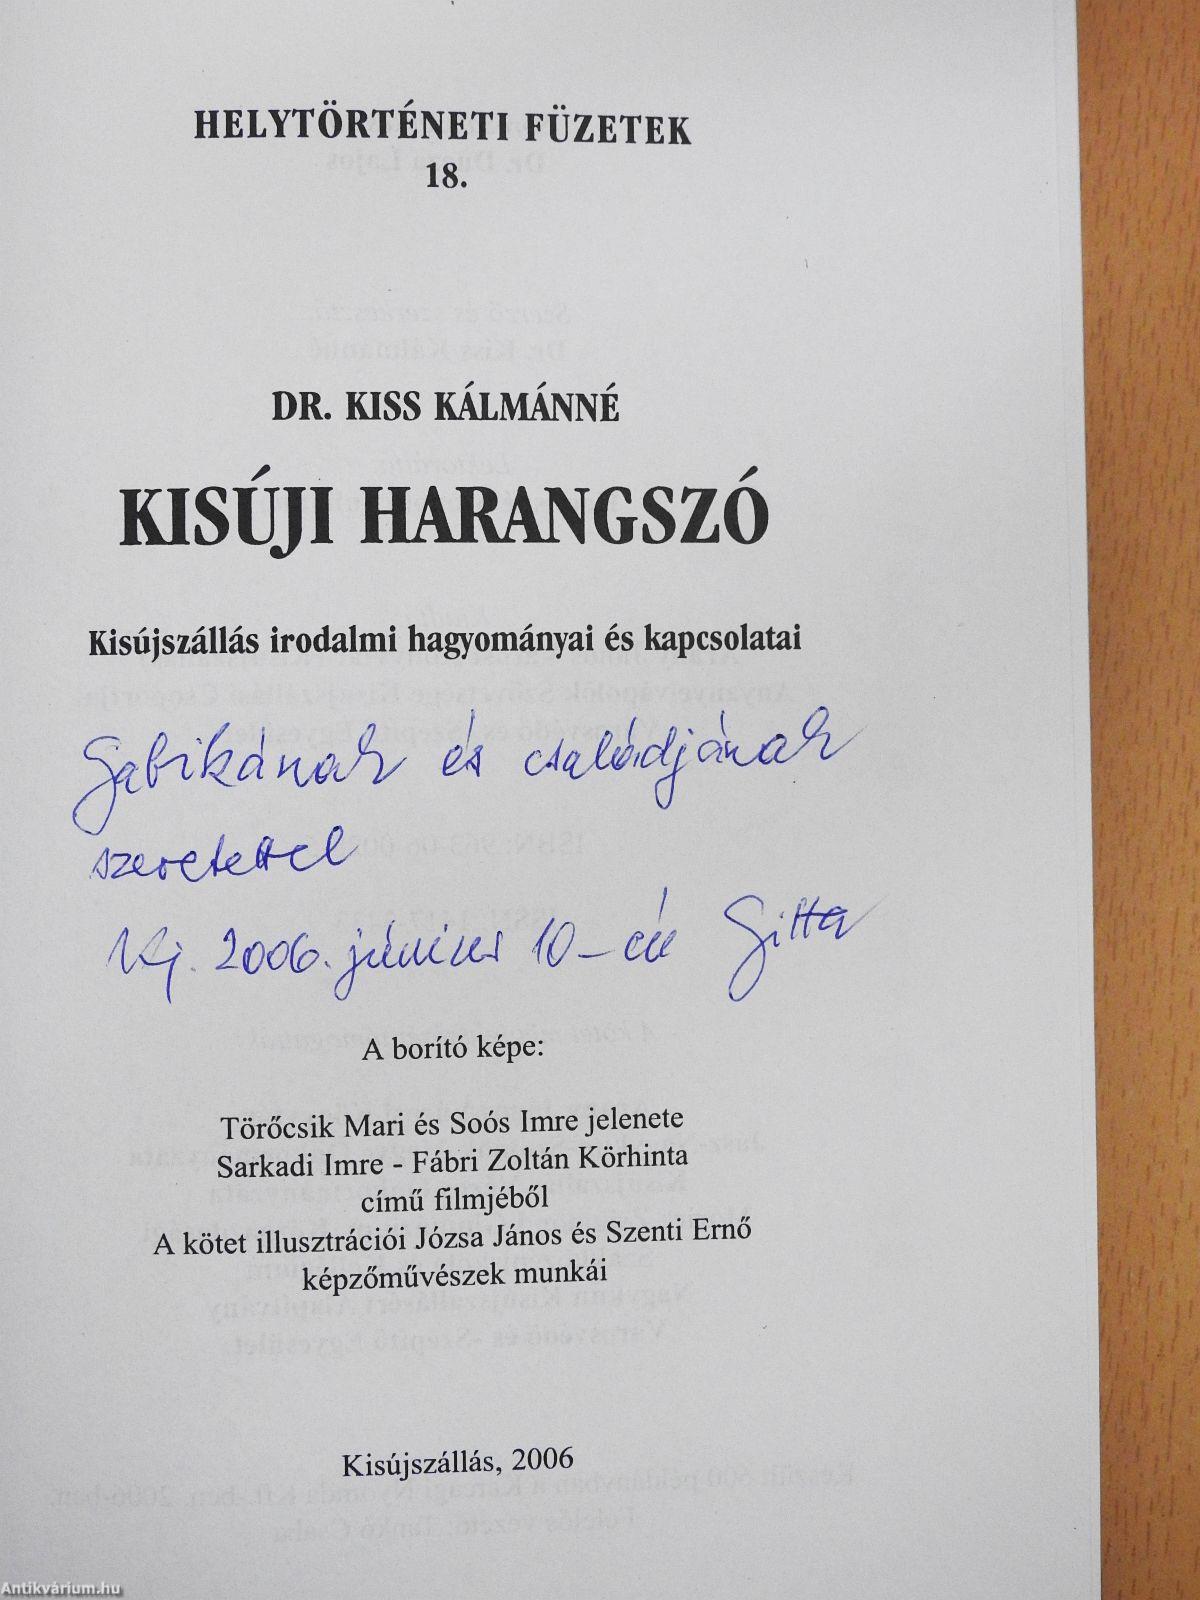 HELYTÖRTÉNETI FÜZETEK
18.
DR. KISS KÁLMÁNNÉ
KISÚJI HARANGSZÓ
Kisújszállás irodalmi hagyományai és kapcsolatai
Gabikának és családjának
szeretettel
Kúj. 2006. június 10-én Gitta
A borító képe:
Törőcsik Mari és Soós Imre jelenete
Sarkadi Imre - Fábri Zoltán Körhinta
című filmjéből
A kötet illusztrációi Józsa János és Szenti Ernő
képzőművészek munkái
Kisújszállás, 2006
Antikvárium.hu